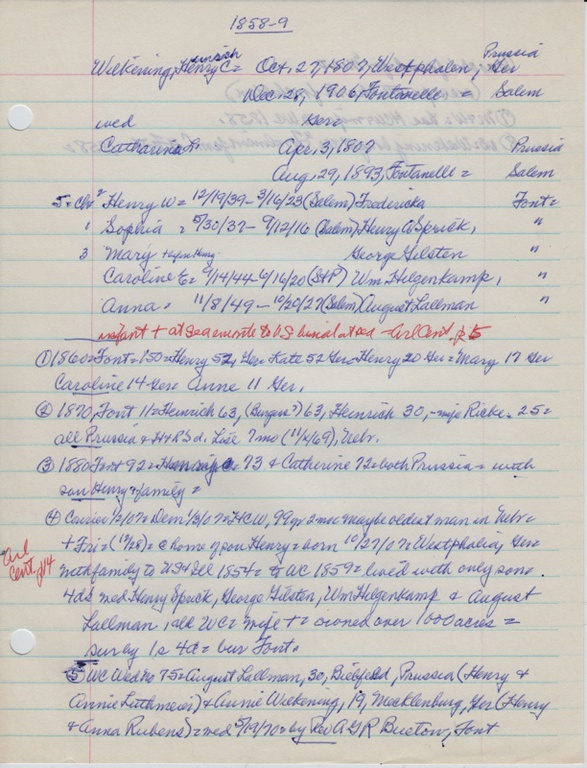 1858-9
Wilkening, Henry C = Oct. 27, 1807, Westphalen, Prussia Ger
Dec. 28, 1906, Fontanelle = Salem
wed Ger
Catharine L. Apr. 3, 1807 Prussia
Aug. 29, 1893, Fontanelle = Salem
5 = Chr 2 Henry W = 12/19/39 - 3/16/23 (Salem) Fredericka Font =
1 Sophia = 5/30/37 - 9/12/16 (Salem) Henry A Sprick, "
3 Mary George Gilsten "
Caroline E = 9/14/44 - 6/16/20 (StP) Wm Hilgenkamp, "
Anna = 11/8/49 - 10/20/27 (Salem) August Lallman "
infant + at sea enroute to US burial at sea - Arl Cent, p 5
① 1860 = Font = 150 = Henry 52, Ger = Kate 52 Ger = Henry 20 Ger = Mary 17 Ger
Caroline 14 Ger = Anne 11 Ger.
② 1870, Font 11 = Heinrich 63, 63, Heinrich 30, - wife Ricke = 25 =
all Prussia & H & R's d. Lise 7 mo (11/69), Nebr.
③ 1880 Font 92 = Henry C = 73 & Catherine 72 = both Prussia = with
son Henry & family =
④ Courier 1/2/07 = Dem 1/3/07 = HCW, 99 yr 2 mos maybe oldest man in Nebr =
+ Fri = (12/28) = @ home of son Henry = born 10/27/07 = Westphalia, Ger =
Arl Cent, p 14
with family to US & Ill 1854 = to WC 1859 = lived with only son =
4 ds wed Henry Sprick, George Gilsten, Wm Hilgenkamp & August
Lallman, all WC = wife + = owned over 1000 acres =
surv by 1s 4d = bur Font.
⑤ WC Wed No 75 = August Lallman, 30, Bielfeld, Prussia (Henry &
Annie Luthmeier) & Annie Wickening, 19, Mecklenburg, Ger (Henry
& Anna Rubens) = wed 5/19/70 = by Rev A G R Buetow, Font